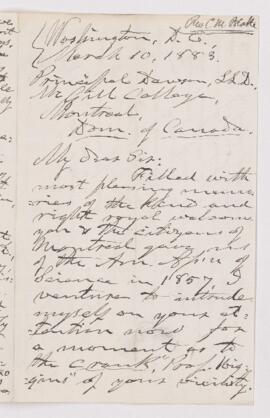 Rev C. M. Blake
Washington, D.C.,
March 10, 1883.
Principal Dawson, LL.D.
McGill College,
Montreal,
Dom. of Canada.
My dear Sir:
Filled with
most pleasing memo-
ries of the kind and
right royal welcome
you & the citizens of
Montreal gave us
of the Am. Ass'n of
Science in 1857, I
venture to intrude
myself on your at-
tention now for
a moment as to
the "crank," Prof. "Wig-
gins" of your vicinity.